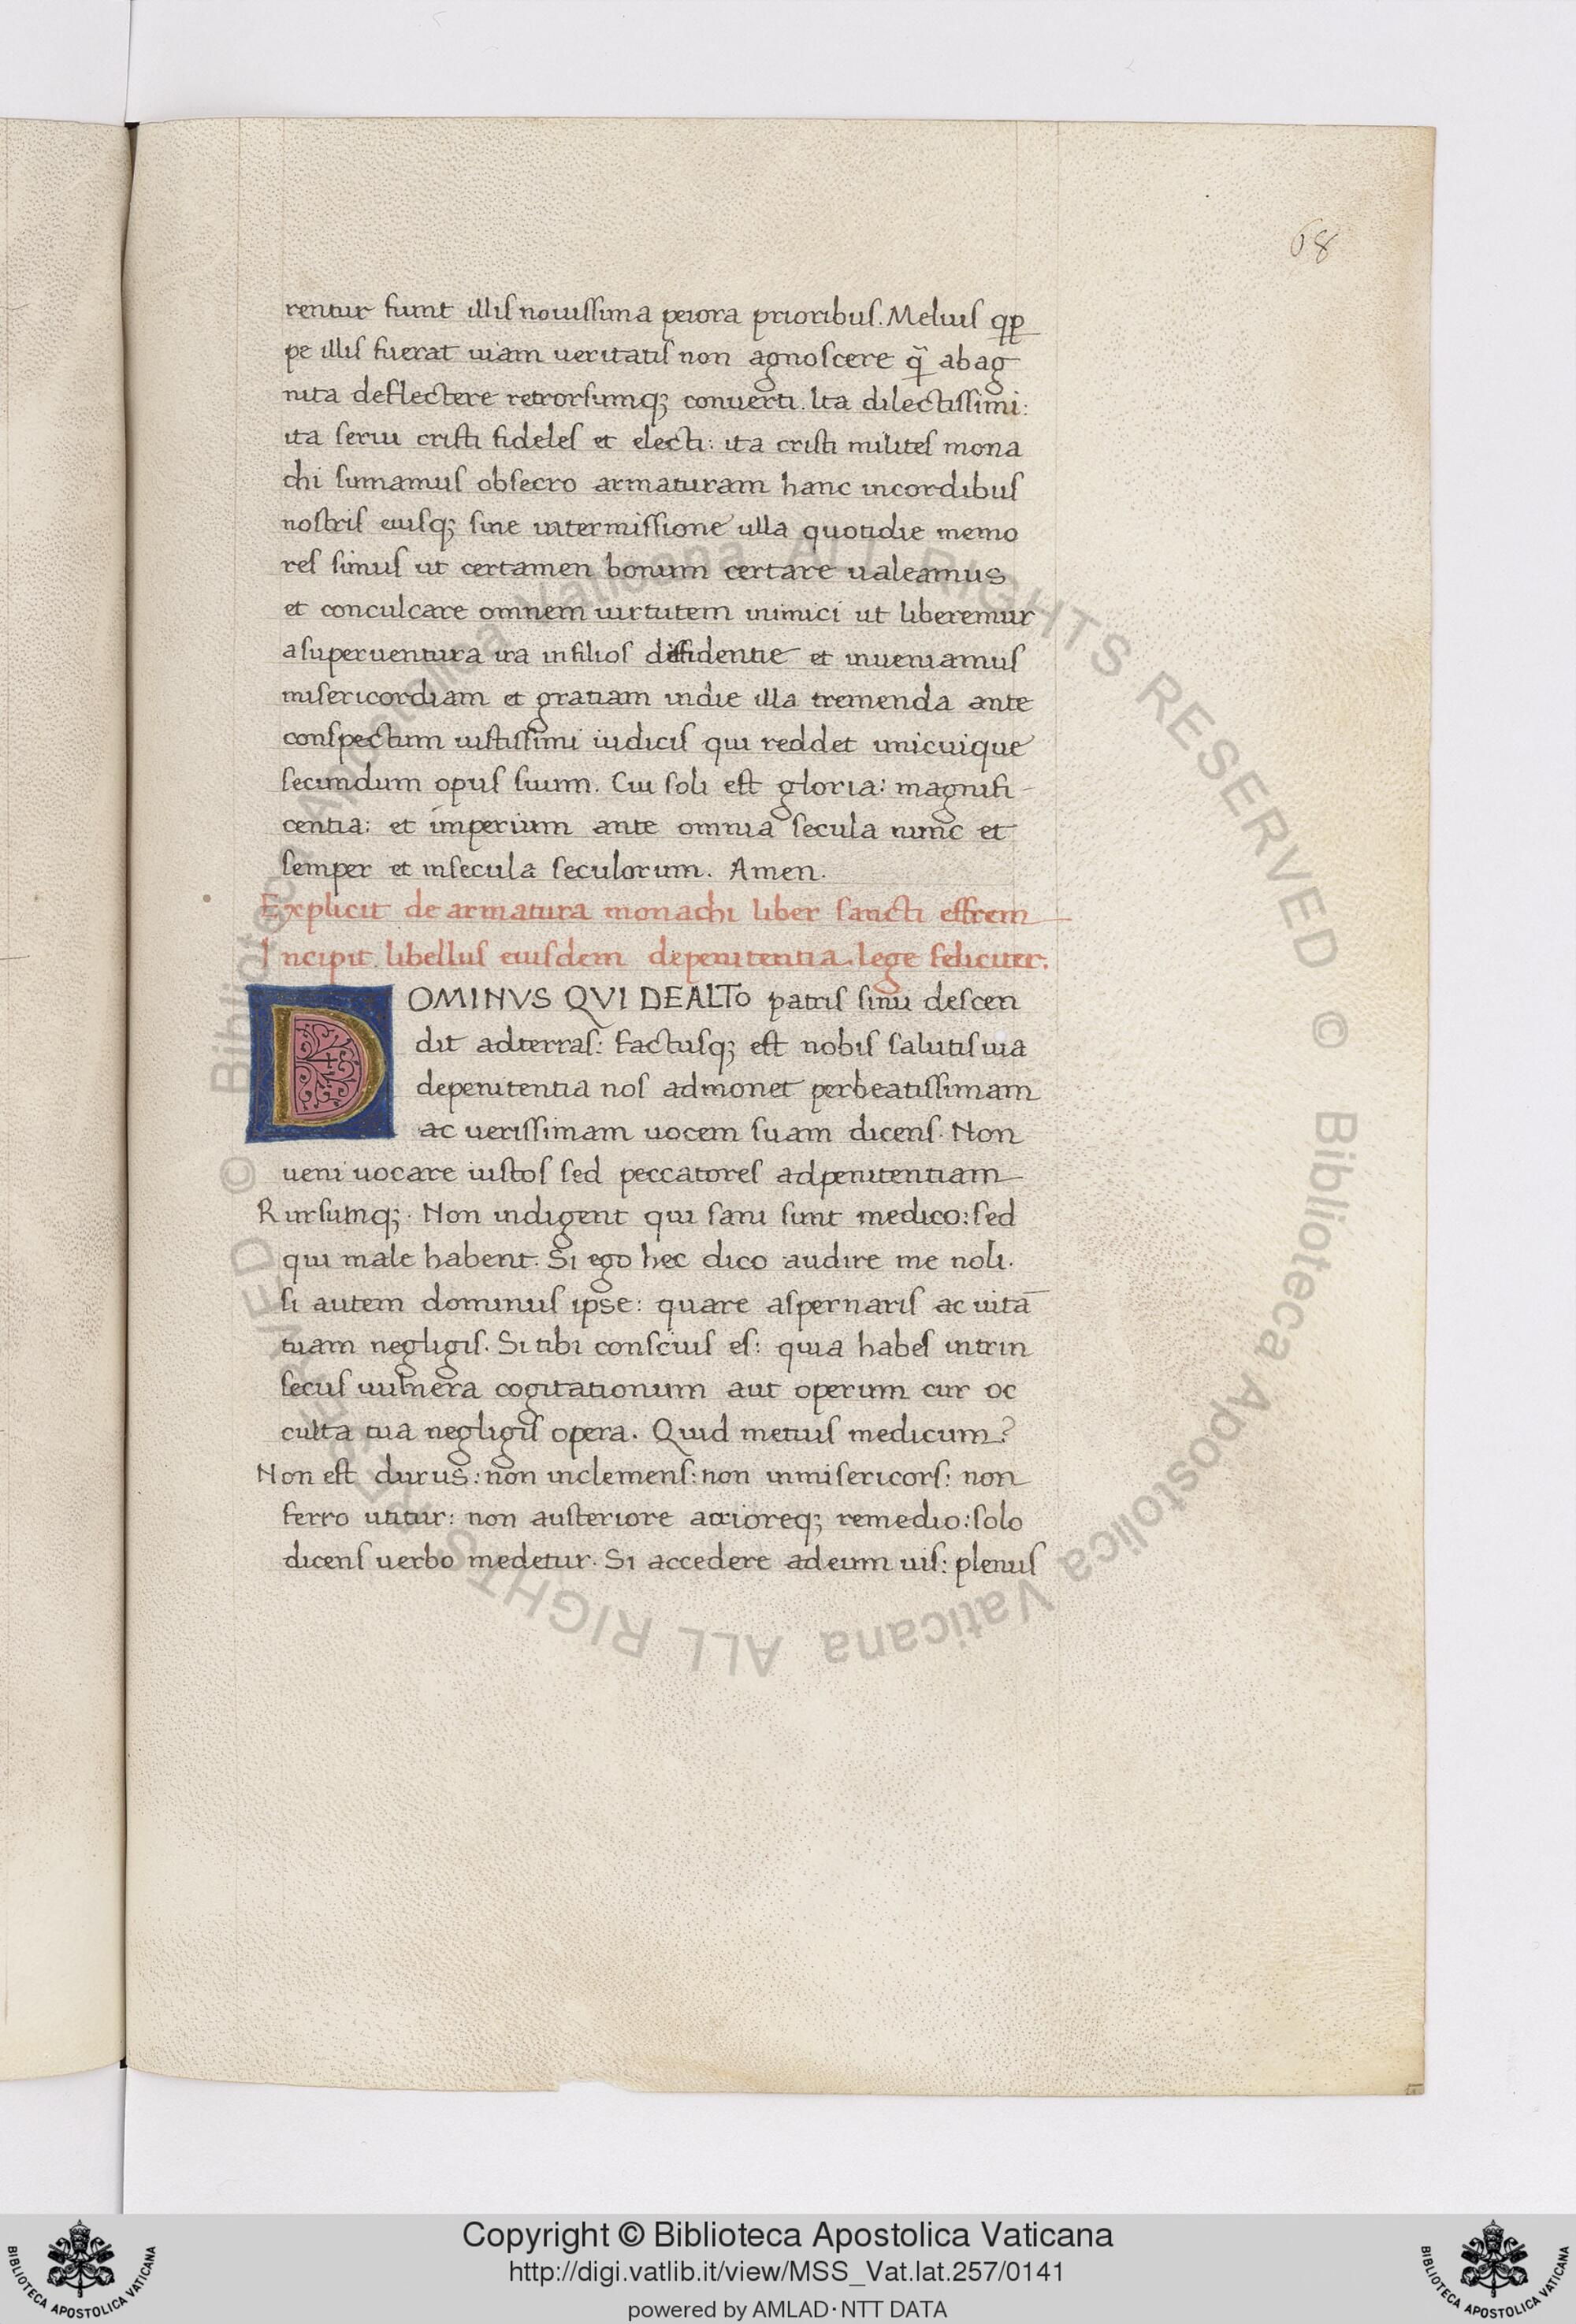 68
rentur fiunt illis nouissima peiora prioribus. Melius qp̱
pe illis fuerat uiam ueritatis non agnoscere q̄ abag
nita deflectere retrorsumq; conuerti. Ita dilectissimi:
ita serui cristi fideles et electi: ita cristi milites mona
chi sumamus obsecro armaturam hanc incordibus
nostris eiusq; sine intermissione ulla quotidie memo
res simus ut certamen bonum certare ualeamus
et conculcare omnem uirtutem inimici ut liberemur
asuperuentura ira infilios diffidentie et inueniamus
misericordiam et gratiam indie illa tremenda ante
conspectum iustissimi iudicis qui reddet unicuique
secundum opus suum. Cui soli est gloria: magnifi-
centia: et imperium ante omnia secula nunc et
semper et insecula seculorum. Amen.
Explicit de armatura monachi liber sancti effrem
Incipit libellus eiusdem depenitentia. lege feliciter.
DOMINVS QVI DEALTO patris sinu descen
dit adterras: factusq; est nobis salutis uia
depenitentia nos admonet perbeatissimam
ac uerissimam uocem suam dicens. Non
ueni uocare iustos sed peccatores adpenitentiam
Rursumq;. Non indigent qui sani sunt medico: sed
qui male habent. Si ego hec dico audire me noli.
si autem dominus ipse: quare aspernaris ac uitā
tuam negligis. Si tibi conscius es: quia habes intrin
secus uulnera cogitationum aut operum cur oc
culta tua negligis opera. Quid metuis medicum?
Non est durus: non inclemens: non inmisericors: non
ferro utitur: non austeriore acrioreq; remedio: solo
dicens uerbo medetur. Si accedere adeum uis: plenus
© Biblioteca Apostolica Vaticana ALL RIGHTS RESERVED © Biblioteca Apostolica Vaticana ALL RIGHTS RESERVED
Copyright © Biblioteca Apostolica Vaticana
http://digi.vatlib.it/view/MSS_Vat.lat.257/0141
powered by AMLAD·NTT DATA
BIBLIOTECA APOSTOLICA VATICANA
BIBLIOTECA APOSTOLICA VATICANA